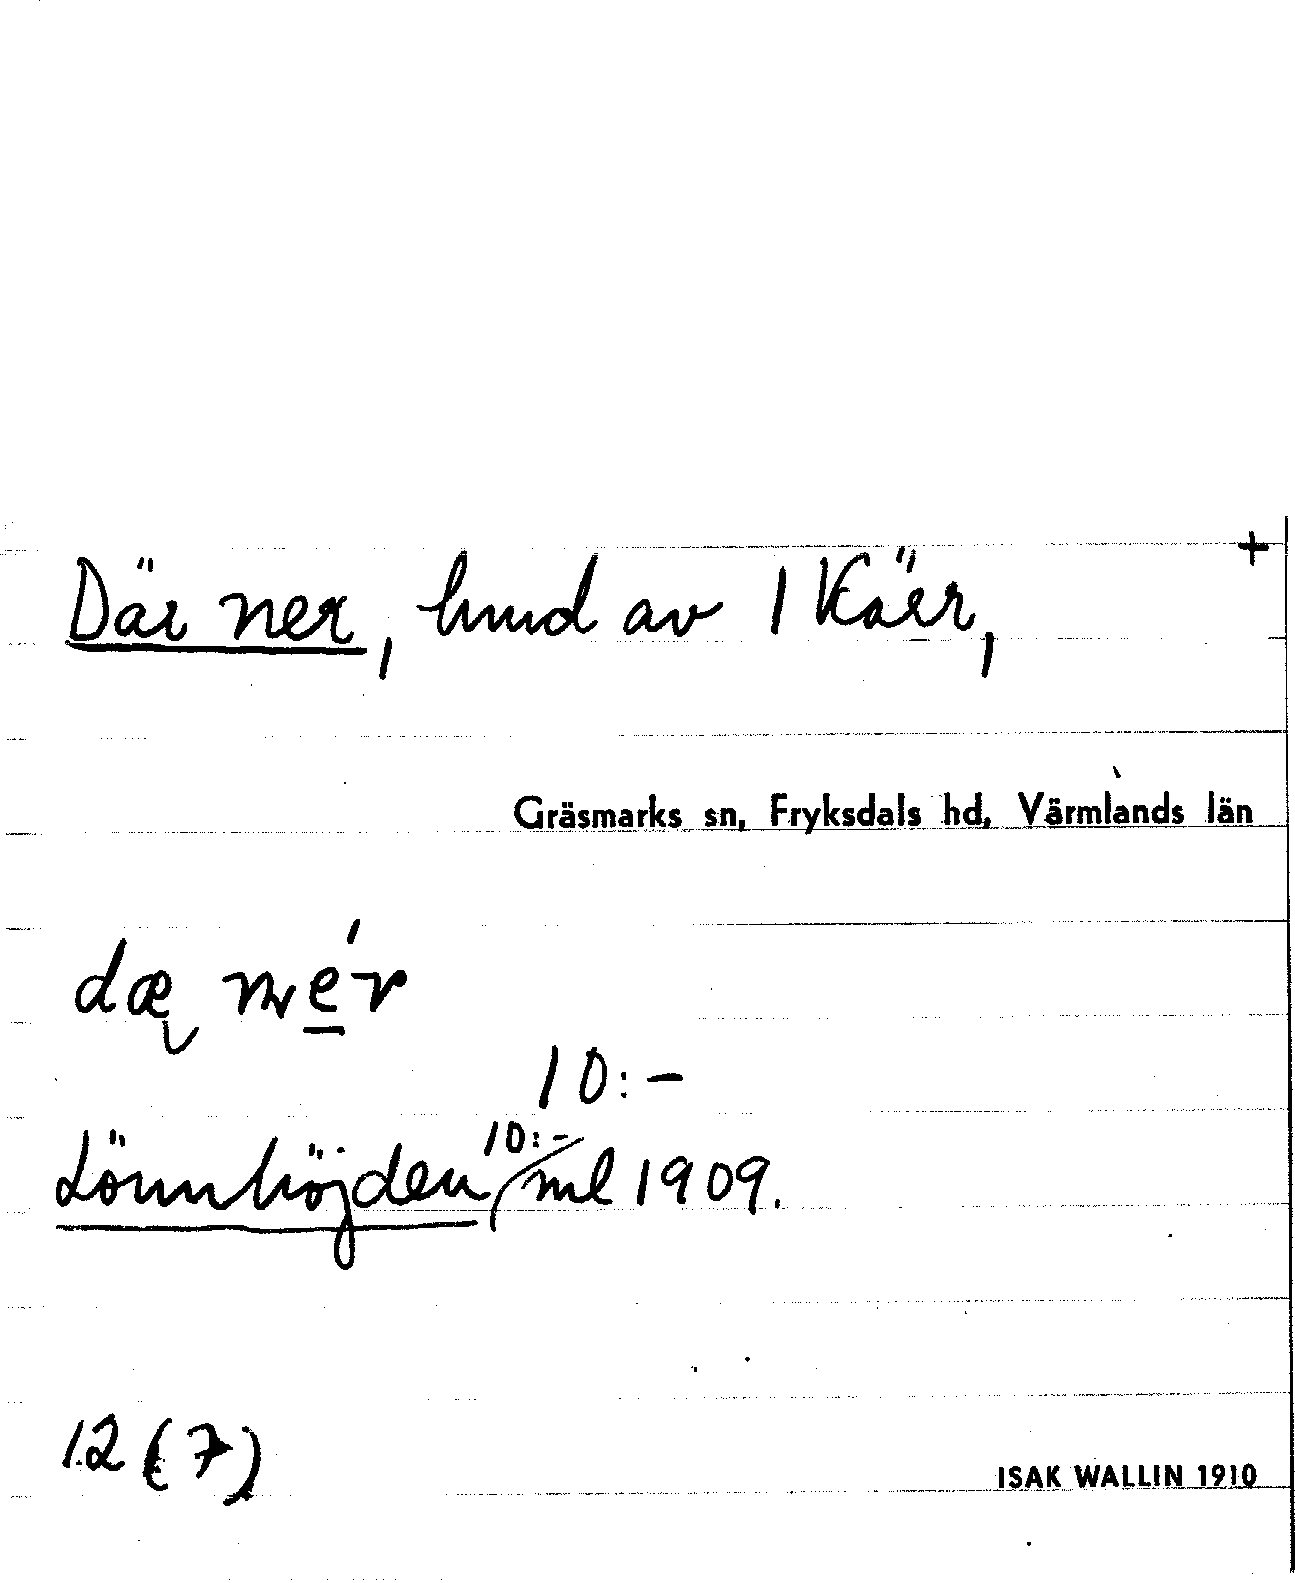 +
Där ner, hmd av 1 Käer,
Gräsmarks sn, Fryksdals hd, Värmlands län
dæ ner
10:-
10:-
Lönnhöjden, ml 1909.
12 (7)
ISAK WALLIN 1910